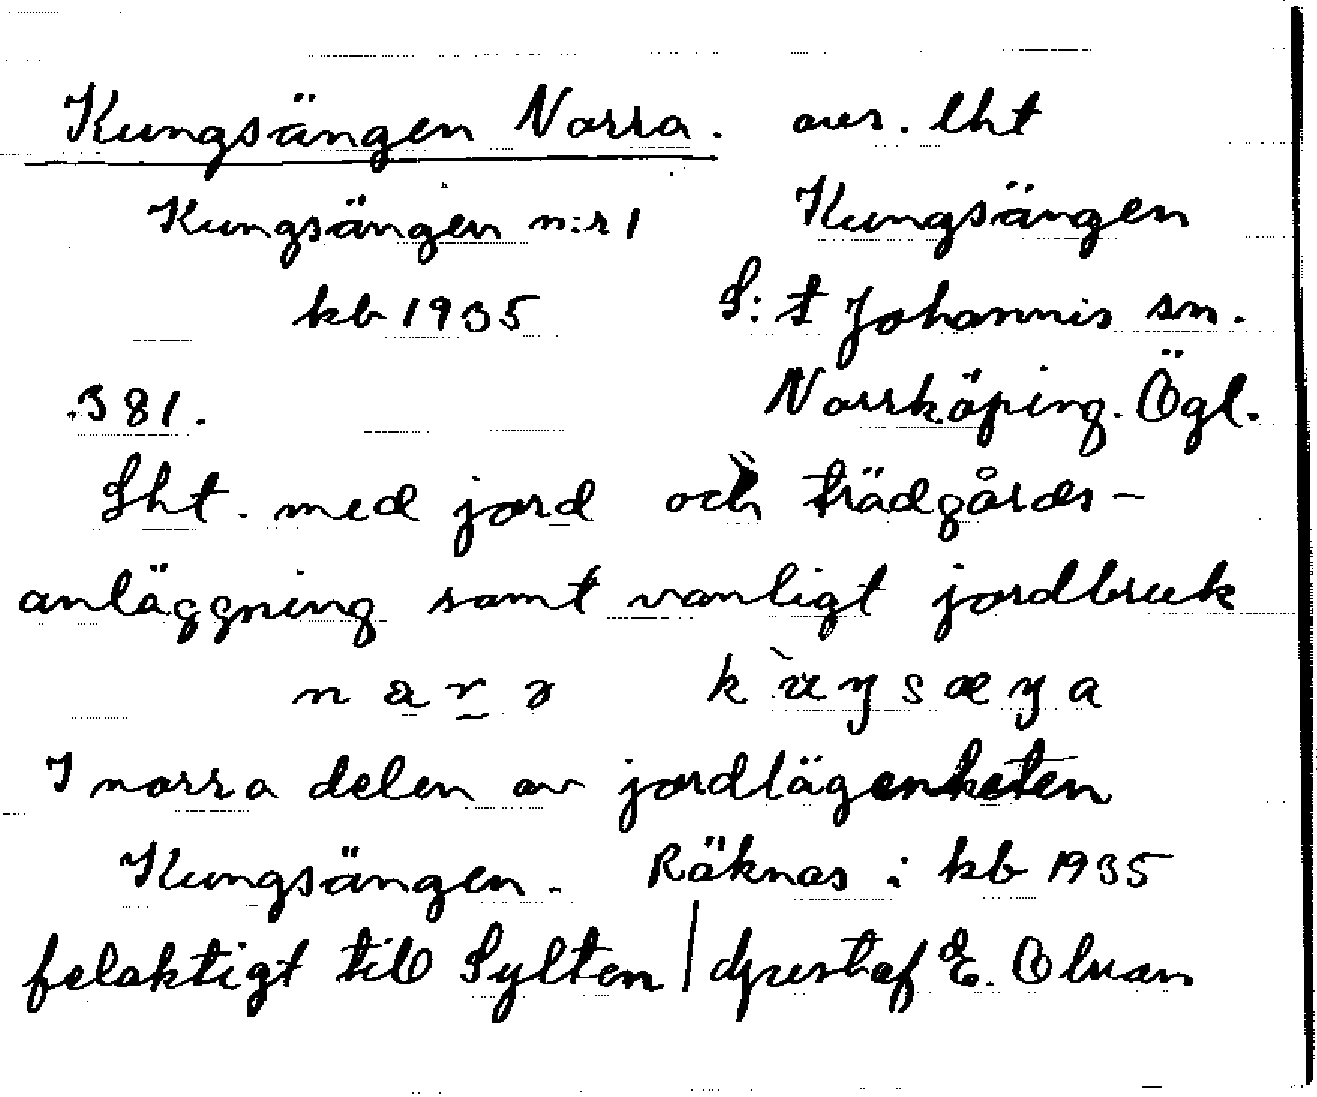 Kungsängen Norra. avs. lht
Kungsängen n:r 1 Kungsängen
kb 1935 S:t Johannis sn.
381. Norrköping. Ögl.
Lht. med jord och trädgårds-
anläggning samt vanligt jordbruk
I norra delen av jordlägenheten
Kungsängen. Räknas i kb 1935
felaktigt till Sylten / Gustaf E. Olson